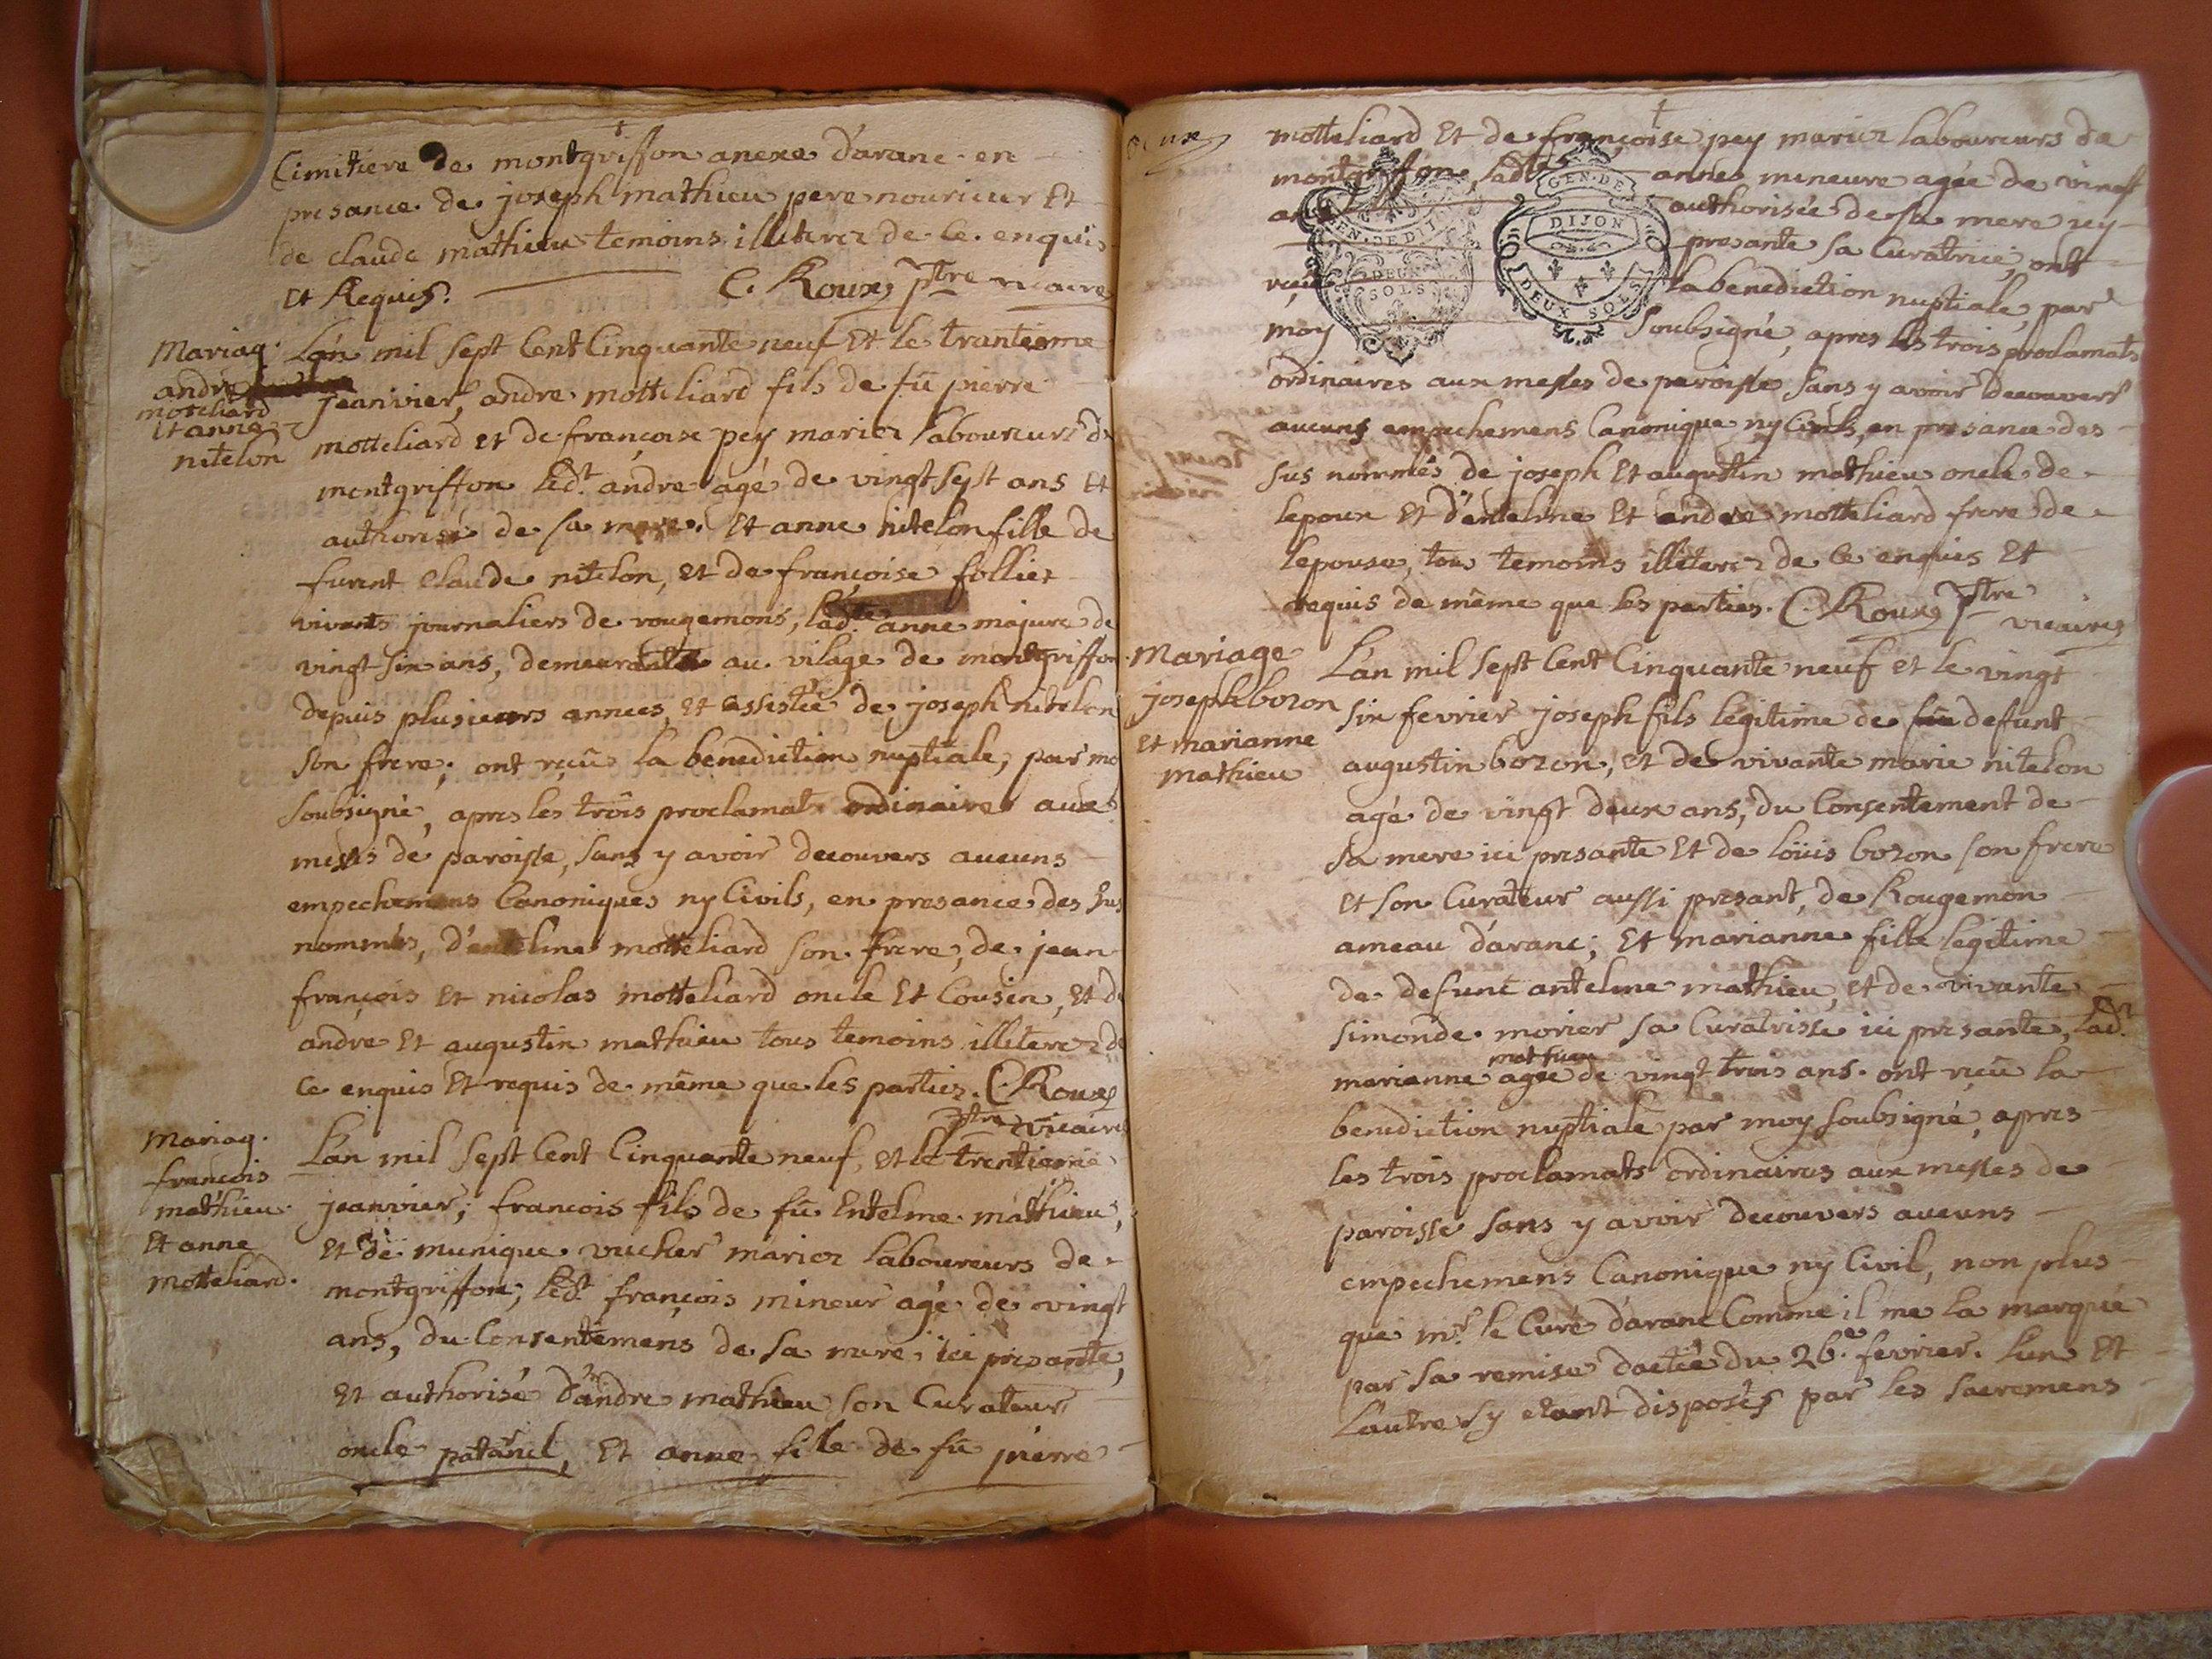 Cimitiere de montgriffon anexe d'aranc en
presance de joseph mathieu pere nouricier Et
de claude mathieu temoins illiterez de ce enquis
Et Requis. C. Roux, ptre vicaire
Mariag.
andré
motteliard
Et anne
nitelon
Lan mil sept Cent Cinquante neuf Et le trantieme
jeanvier, andre motteliard fils de fû pierre
motteliard et de françoise pey mariez laboureurs de
montgriffon ledt. andre agé de vingt sept ans Et
authorisé de sa mere. Et anne nitelon fille de
furent claude nitelon, et de françoise follier
vivants journaliers de rougemons, ladte. anne majure de
vingt six ans, demeurante au vilage de montgriffon
depuis plusieurs annees, et assistée de joseph nitelon
son frere, ont reçû la benediction nuptiale, par mo
soubsigné, apres les trois proclamats ordinaires aux
messes de paroisse, sans y avoir decouvers aucuns
empechemens Canoniques ny Civils, en presance des sus
nommés, d'entelme motteliard son frere, de jean
françois et nicolas motteliard oncle Et Cousin, Et de
andre Et augustin mathieu tous temoins illiterez de
ce enquis Et requis de même que les partiez. C. Roux
ptre vicaire
Mariag.
françois
mathieu
Et anne
motteliard.
Lan mil sept Cent Cinquante neuf, et le trentieme
jeanvier; francois fils de fû Entelme mathieu,
Et de munique vucher mariez laboureurs de
montgriffon; ledt. françois mineur agé de vingt
ans, du Consentemens de sa mere ici presante,
Et authorisé d'andre mathieu son Curateur
oncle paternel, Et anne fille de fû pierre
Deux
motteliard Et de françoise pey mariez laboureurs de
montgriffon, ladte. année mineure agée de vingt
ans authorisée de sa mere icy
presante sa Curatrice, ont
reçû la benediction nuptiale, par
moy soubsigné, apres les trois proclamats
GEN. DE DIJON
DEUX
SOLS
GEN. DE
DIJON
DEUX SOLS
ordinaires aux messes de paroisse sans y avoir decouvers
aucuns empechemens Canonique ny Civils, en presance des
sus nommés de joseph Et augustin mathieu oncle de
lepoux Et d'entelme Et andre motteliard frere de
lepouse, tous temoins illiterez de ce enquis Et
requis de même que les parties. C. Roux, ptre
vicaire
Mariage
joseph bozon
Et marianne
mathieu
L'an mil sept Cent Cinquante neuf et le vingt
six fevrier joseph fils légitime de defunt
augustin bozon, et de vivante marie nitelon
agé de vingt deux ans, du Consentement de
sa mere ici presante Et de loüis bozon son frere
Et son Curateur aussi presant, de Rougemon
ameau d'aranc; Et marianne fille legitime
de defunc antelme mathieu, et de vivante
simonde morier sa Curatrisse ici presante, ladt.
marianne mathieu agée de vingt trois ans. ont reçû la
benediction nuptiale par moy soubsigné, apres
les trois proclamats ordinaires aux messes de
paroisse sans y avoir decouvers aucuns
empechemens Canonique ny Civil, non plus
que mr. le Curé d'aranc Comme il me la marqué
par sa remise dactée du 26e. fevrier. lun Et
l'autre sy etant disposés par les sacremens